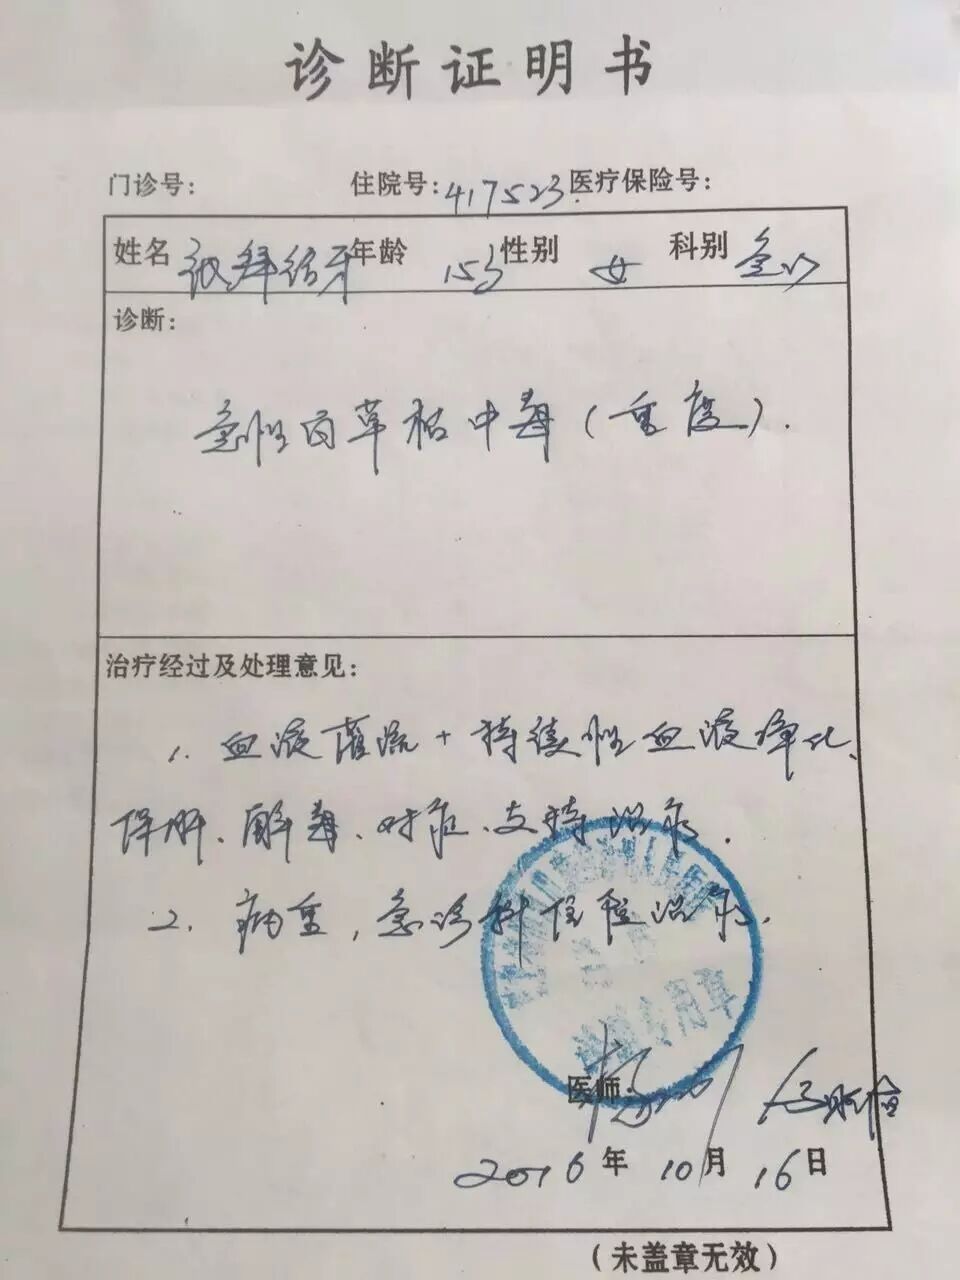 诊断证明书
门诊号: 住院号:417523 医疗保险号:
姓名 年龄 15岁 性别 女 科别 急诊
诊断:
急性百草枯中毒(重度).
治疗经过及处理意见:
1. 血液灌流+持续性血液净化、
保肝、解毒、对症、支持治疗.
2. 病重,急诊科住院治疗.
医师:
2016年10月16日
(未盖章无效)